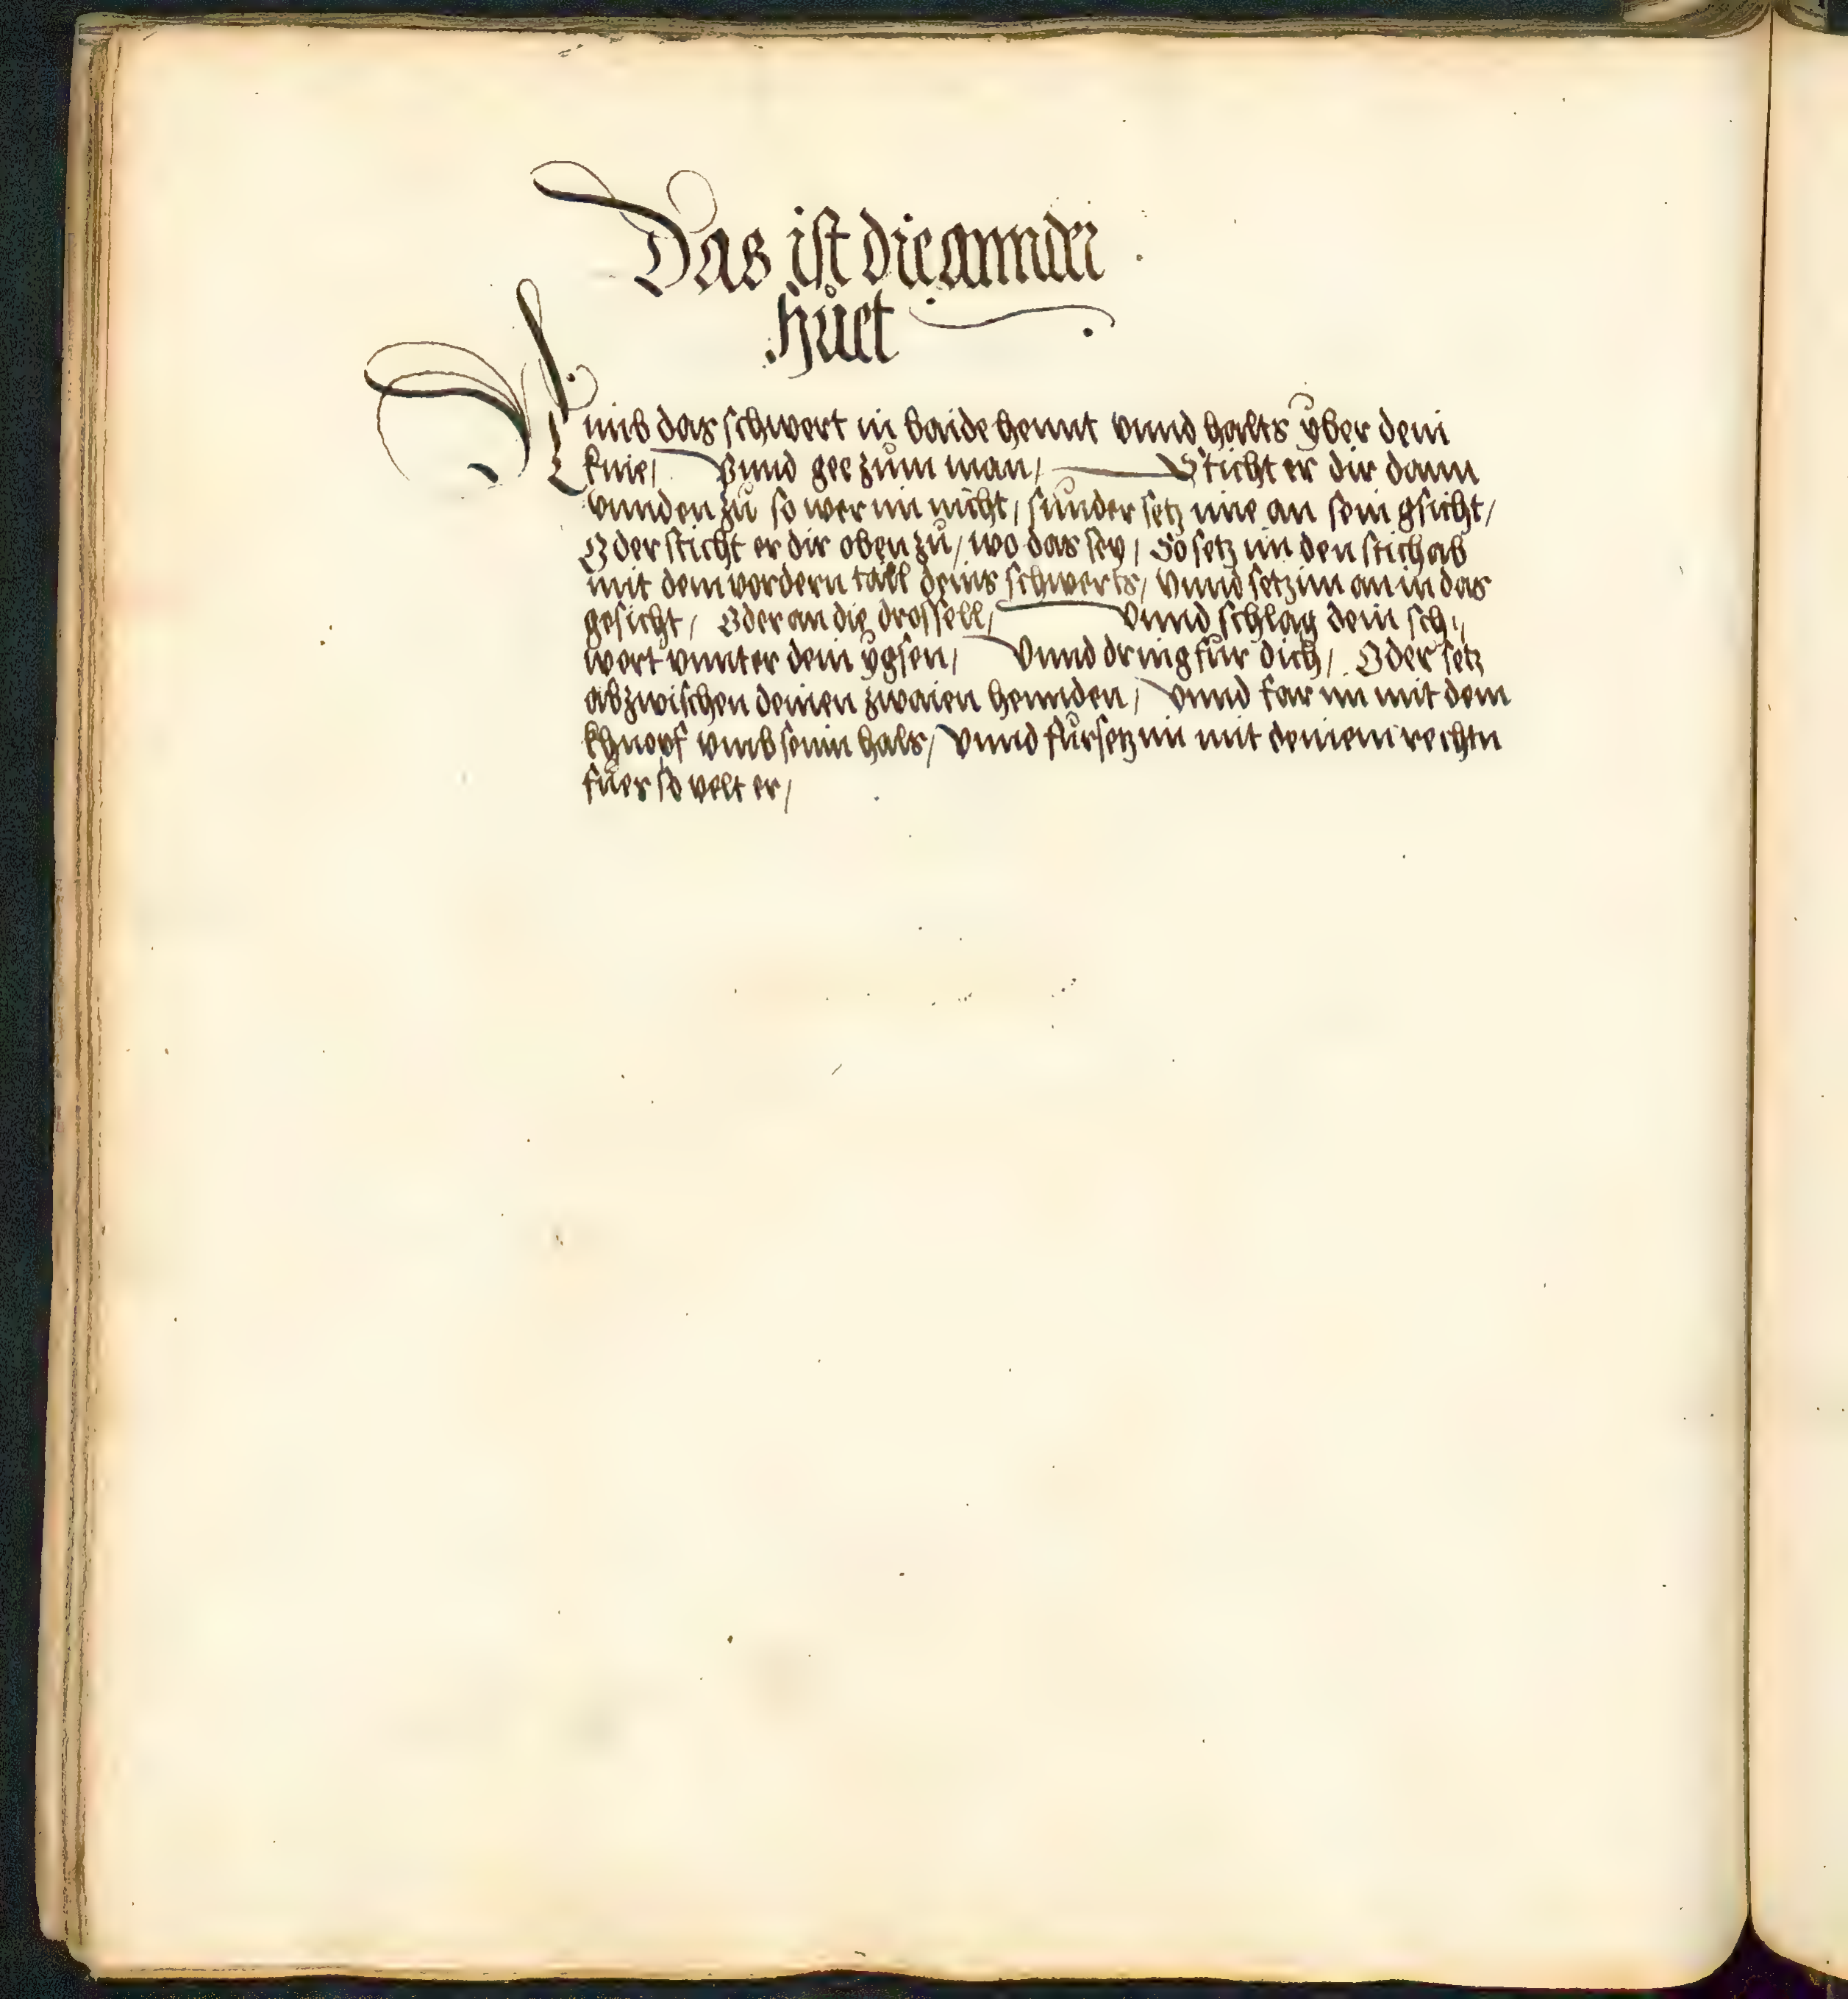 Das ist die annder
hůet
Nimb das schwert in baide hennt vnnd halts yber dem
knie/ Vnnd gee zům man/ Sticht er dir dann
vnnden zů so wer im nicht/ sunder setz ime an sein gsicht/
Oder sticht er dir oben zů/ wo das sey/ So setz im den stich ab
mit dem vordern tail deins schwerts/ Vnnd setz im an in das
gesicht/ Oder an die drossell/ Vnnd schlag dein sch,,
wert vnnter dein ygsen/ Vnnd dring für dich/ Oder setz
ab zwischen deinen zwaien hennden/ Vnnd far im mit dem
khnopf vmb seinn hals/ Vnnd fürsetz im mit deinem rechtn
fůes so velt er/